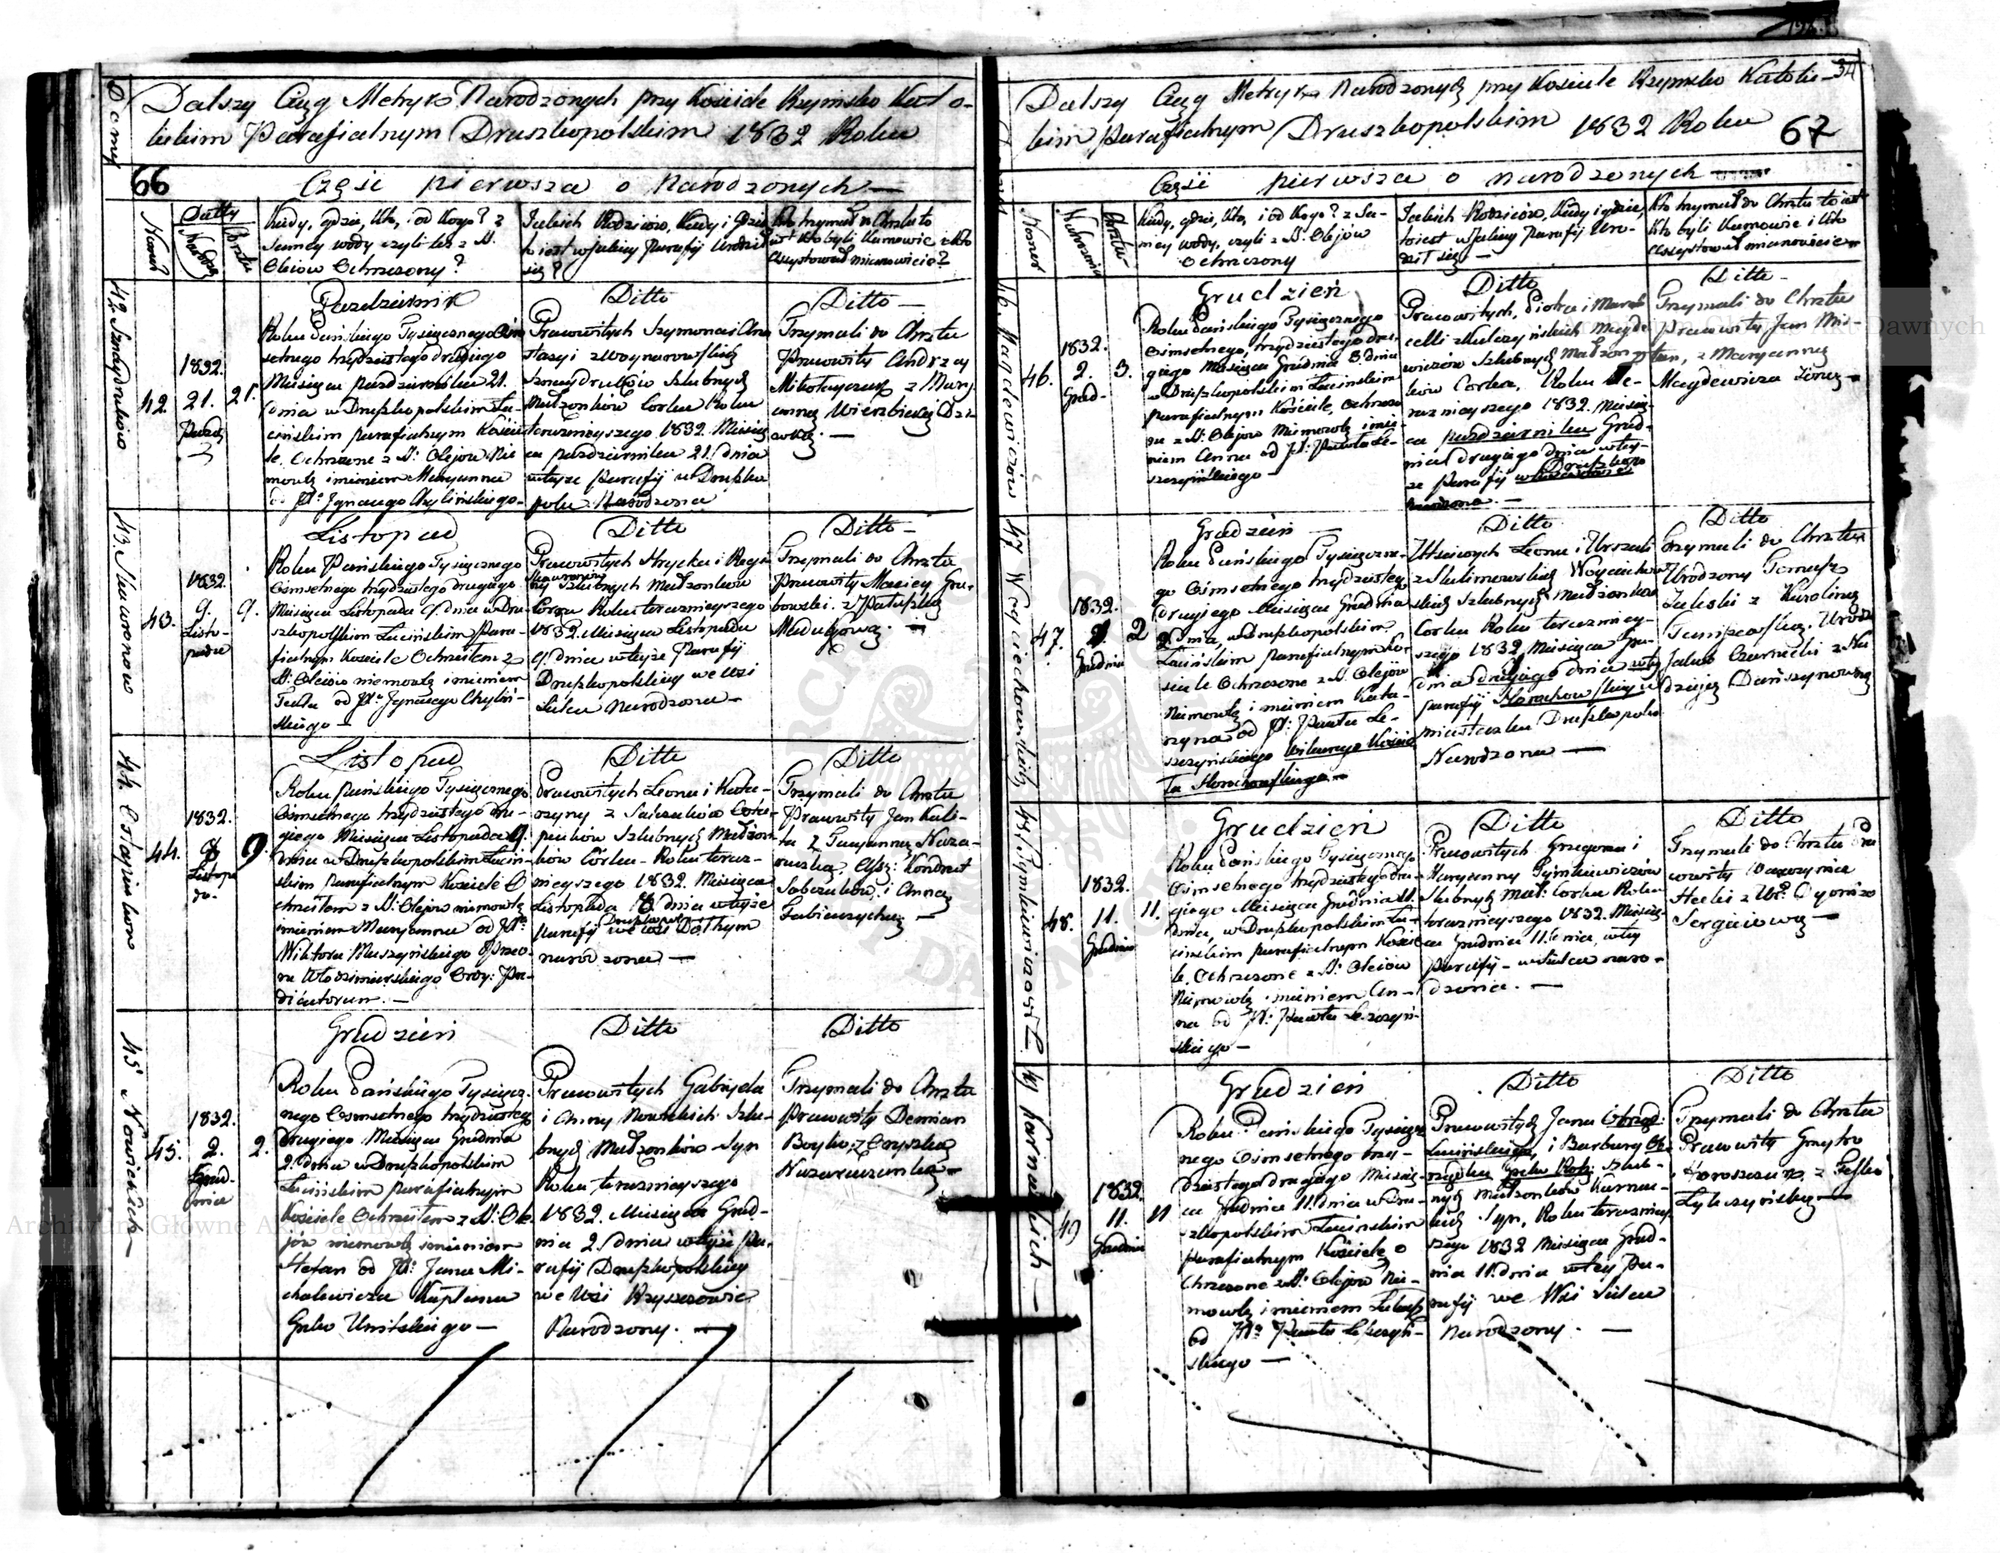 Dalszy Ciąg Metryk Narodzonych przy Kościele Rzymsko Kato-
lickim Parafialnym Druszkopolskim 1832 Roku
66
Część pierwsza o Narodzonych
Daty
Kiedy, gdzie, kto, i od Kogo? z
Samej wody czyli też z S.
Oleiow Ochrzczony?
Jakich Rodziców, Kiedy i gdzie
to iest w jakiey Parafij Urodził
się?
Kto trzymał do Chrztu to
iest kto byli Kumowie i kto
assystował mianowicie?
42. Sznaydruków
42.
1832.
21.
21.
Pazdziernik
Roku Pańskiego Tysiącznego Ośm-
setnego trzydziestego drugiego
Miesiąca pazdziernika 21.
dnia w Druszkopolskim Ła-
cińskim parafialnym Koście-
le. Ochrzczone z S. Olejow Nie
mowlę imieniem Maryanna
od X. Jgnacego Chylińskiego.
Ditto
Pracowitych Szymona i Ana
stazyi z Woynarowskich
Sznaydruków Szlubnych
Małżonków Corka Roku
teraznieyszego 1832. Miesią
ca pazdziernika 21. dnia
w teyże Parafij w Druszko
polu Narodzona
Ditto
Trzymali do Chrztu
Pracowity Andrzey
Mikołayczuk z Mary
anną Wierzbicką
43. Skworonow
43.
1832.
9.
Listo-
pada
9.
Listopad
Roku Pańskiego Tysiącznego
Ośmsetnego trzydziestego drugiego
Miesiąca Listopada 9. dnia w Dru-
szkopolskim Łacińskim Para-
fialnym Kosciele Ochrzczono z
S. Oleiow niemowlę imieniem
Tekla od X. Jgnacego Chyliń-
skiego
Ditto
Pracowitych Hrycka i Regi
ny Szlubnych Małżonków
Corka Roku teraznieyszego
1832. Miesiąca Listopada
9. dnia w teyże Parafij
Druszkopolskiey we wsi
Łuka Narodzona
Ditto
Trzymali do Chrztu
Pracowity Maciey Gra-
bowski z
44. Ostapiuków
44.
1832.
8
Listopa
9.
Listopad
Roku pańskiego Tysiącznego
Ośmsetnego trzydziestego dru-
giego Miesiąca Listopada 9.
dnia w Druszkopolskim Łaciń-
skim Parafialnym Kościele O
chrzczono z S. Olejow niemowlę
imieniem Maryanna od X.
Wiktora Muszyńskiego Przeo-
ra Włodzimirskiego Ordy: Præ-
dicatorum.
Ditto
Pracowitych Leona i Kata-
rzyny z Osta-
piuków Szlubnych Małżon-
ków Córka Roku teraz-
nieyszego 1832. Miesiąca
Listopada 8 dnia w teyże
Parafij we wsi
narodzona
Ditto
Trzymali do Chrztu
Pracowity Jan Kali-
ta z Maryanną Naza-
ruczką Assy: Kondrat
i Anna
45 Nowickich
45.
1832.
2.
Grud-
nia
2.
Grudzień
Roku Pańskiego Tysiącz-
nego Ośmsetnego trzydziestego
Drugiego Miesiąca Grudnia
2. dnia w Druszkopolskim
Łacińskim parafialnym
Kościele Ochrzczono z S. Ole
jów niemowlę imieniem
Stefan od X. Jana Mi-
chalewicza Kapłana
Greko Unitskiego
Ditto
Pracowitych Gabryela
i Anny Nowickich Szlu-
bnych Małżonków Syn
Roku teraznieyszego
1832. Miesiąca Grud-
nia 2. dnia w teyże Pa-
rafij Druszkopolskiey
we Wsi
Narodzony.
Ditto
Trzymali do Chrztu
Pracowity Demian
Boyko z
Nazaruczanką
34
Dalszy Ciąg Metryk Narodzonych przy Kościele Rzymsko Katolic-
kim Parafialnym Druszkopolskim 1832 Roku
67
Część pierwsza o narodzonych
Kiedy, gdzie, kto, i od Kogo? z Sa-
mey wody, czyli z S. Olejów
Ochrzczony
Jakich Rodziców, Kiedy i gdzie,
to iest w jakiey Parafij Uro-
dził się
Kto trzymał do Chrztu to iest
kto byli Kumowie i kto
assystował mianowicie
46. Magdewiczów
46.
1832.
2.
Grud-
3.
Grudzień
Roku Pańskiego Tysiącznego
Ośmsetnego, trzydziestego dru-
giego Miesiąca Grudnia 3. dnia
w Druszkopolskim Łacińskim
parafialnym Kościele, Ochrzczo
ne z S. Olejow Niemowlę imie-
niem Anna od X. Pawła Le-
szczyńskiego
Ditto
Pracowitych, Piotra i Mar-
celli z Kulczyńskich Magde
wiczów Szlubnych Małżon-
ków Corka, Roku te-
raznieyszego 1832. Miesią-
ca pazdziernika Grud-
nia drugiego dnia w tey-
że Parafij
Ditto
Trzymali do Chrztu
Pracowity Jan
z Maryanną
Magdewicza Żoną
47. Woyciechowskich
47.
1832.
2.
Grudnia
2
Grudzień
Roku Pańskiego Tysiączne-
go Ośmsetnego trzydziestego
Drugiego Miesiąca Grudnia
2 dnia, w Druszkopolskim
Łacińskim parafialnym Ko-
ściele Ochrzczone z S. Olejów
Niemowlę imieniem Kata-
rzyna od X. Pawła Le-
szczyńskiego Wikarego Kościo
ła Horochowskiego
Ditto
Uczciwych Leona i Urszuli
z Sulimowskich Woyciechow
skich Szlubnych Małżonków
Corka Roku teraźniey-
szego 1832. Miesiąca Gru-
dnia drugiego dnia w tey
parafij Horochowskiey w
miasteczku Druszkopolu
Narodzona
Ditto
Trzymali do Chrztu
Urodzony Tomasz
Zaleski z Karoliną
Jakub Czarnecki z Na
dzieją Dańszynowną
48 Pynkiewiczów
48.
1832.
11.
Grudnia
11.
Grudzień
Roku Pańskiego Tysiącznego
Ośmsetnego trzydziestego dru-
giego Miesiąca Grudnia 11.
Dnia, w Druszkopolskim Ła-
cińskim parafialnym Koście-
le, Ochrzczone z S. Oleiów
Niemowlę imieniem An-
na od X. Pawła Leszczyń-
skiego
Ditto
Pracowitych Grzegorza i
Maryanny Pynkiewiczów
Szlubnych Małż. Corka Roku
teraznieyszego 1832. Miesią-
ca Grudnia 11. dnia, w tey
Parafij w Łukce naro-
dzona.
Ditto
Trzymali do Chrztu Pra
cowity Wawrzyniec
Sergiiową
49 Karnackich
49
1832.
11.
Grudnia
11
Grudzień
Roku Pańskiego Tysiącz
nego Ośmsetnego trzy-
dziestego drugiego Miesią-
ca Grudnia 11. dnia w Dru-
szkopolskim Łacińskim
parafialnym Kościele o
chrzczone z S. Olejów Nie-
mowlę imieniem Łukasz
od X. Pawła Leszczyń-
skiego
Ditto
Pracowitych Jana Obrząd:
Łacińskiego, i Barbary Ob-
rządku Greko Rossy: Szlub-
nych Małżonków Karnac-
kich Syn, Roku terazniey-
szego 1832 Miesiąca Grud-
nia 11. dnia w tey Pa-
rafij we Wsi Łukce
narodzony.
Ditto
Trzymali do Chrztu
Pracowity
z Teklą